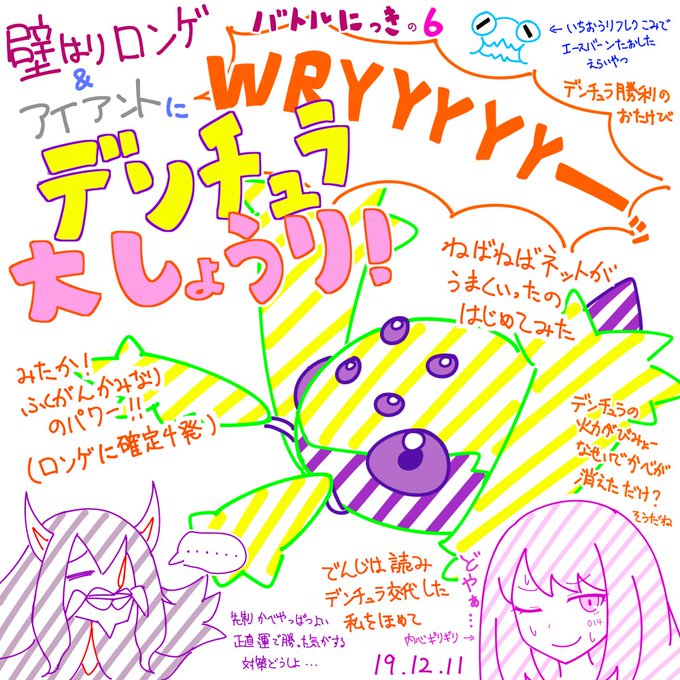 バトルにっきの6
壁はりロンゲ
&
アイアントに
デンチュラ
大しょうり!
WRYYYYYーッ
←いちおうリフレクこみで
エースバーンたおした
えらいやつ
デンチュラ勝利の
おたけび
ねばねばネットが
うまくいったの
はじめてみた
みたか!
ふくがんかみなり
のパワー!!
(ロンゲに確定4発)
デンチュラの
火力がびみょー
なせいでかべが
消えただけ?
そうだね
......
でんじは読み
デンチュラ交代した
私をほめて
どやぁ…
内心ギリギリ→
014
かべやっぱつよい
正直運で勝った気がする
対策どうしよ…
19.12.11